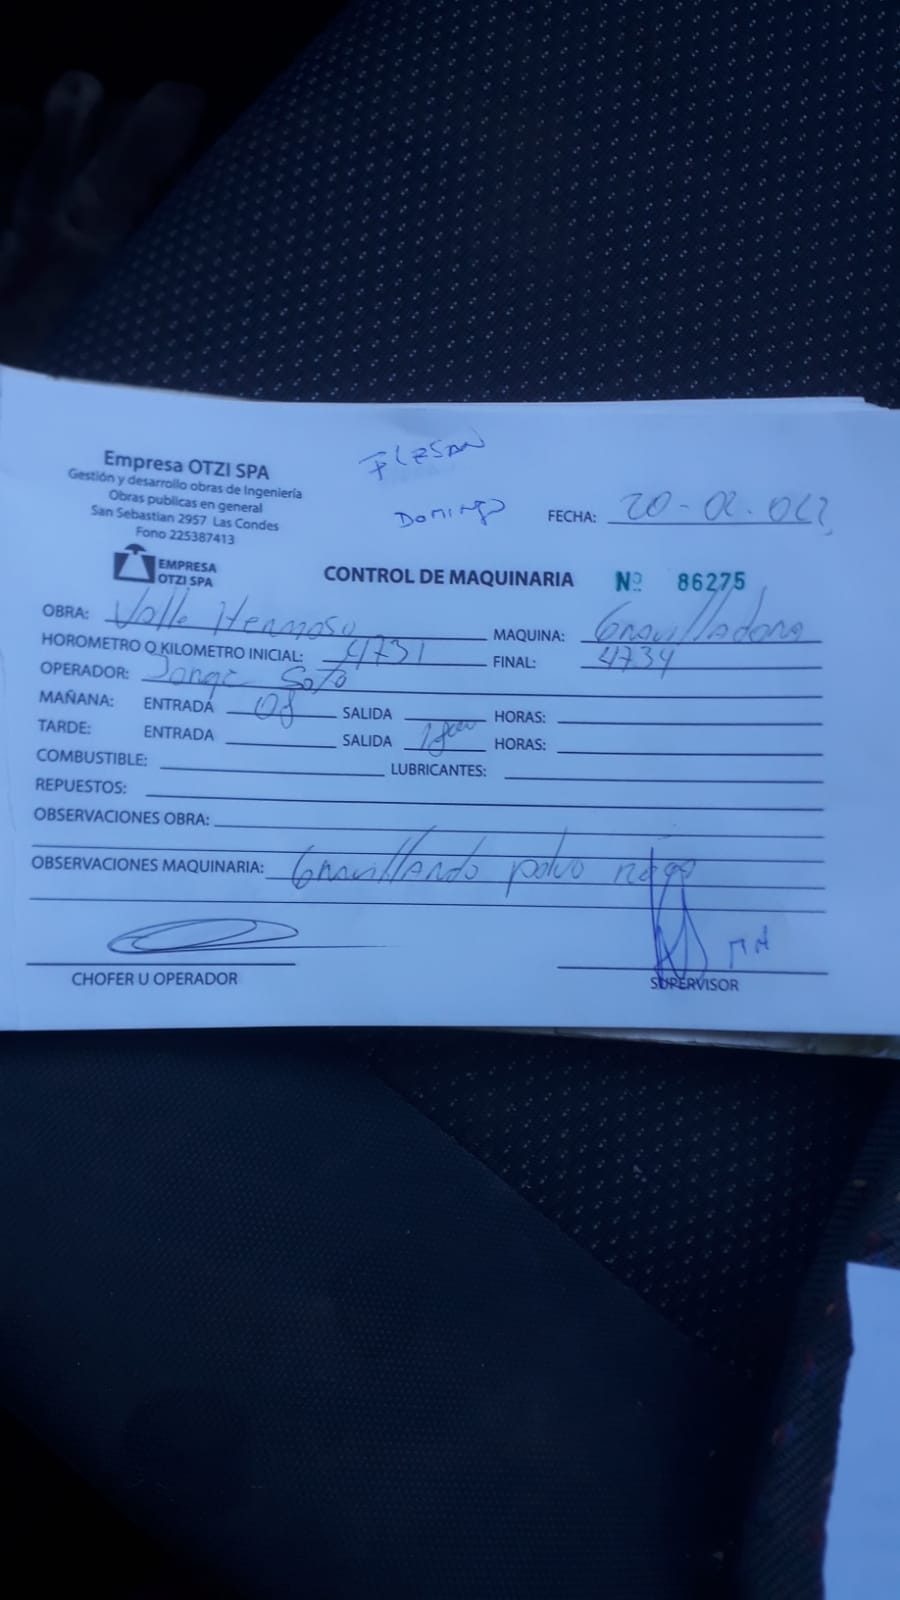 Empresa OTZI SPA
Gestión y desarrollo obras de Ingeniería
Obras publicas en general
San Sebastian 2957 Las Condes
Fono 225387413
EMPRESA
OTZI SPA
FLESAN
DOMINGO
FECHA: 20-02.022
CONTROL DE MAQUINARIA Nº 86275
OBRA: Valle Hermoso MAQUINA: Gravilladora
HOROMETRO O KILOMETRO INICIAL: 4731 FINAL: 4734
OPERADOR: Jorge Soto
MAÑANA: ENTRADA 08 SALIDA HORAS:
TARDE: ENTRADA SALIDA HORAS:
COMBUSTIBLE: LUBRICANTES:
REPUESTOS:
OBSERVACIONES OBRA:
OBSERVACIONES MAQUINARIA: Gravillando polvo
CHOFER U OPERADOR
SUPERVISOR